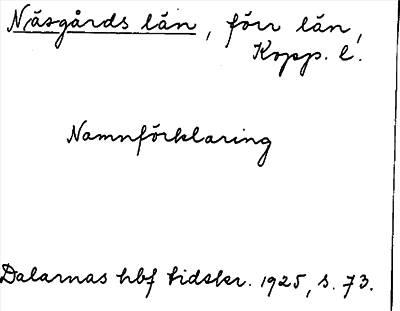 Näsgårds län, förr län,
Kopp. l.
Namnförklaring
Dalarnas hbf tidskr. 1925, s. 73.